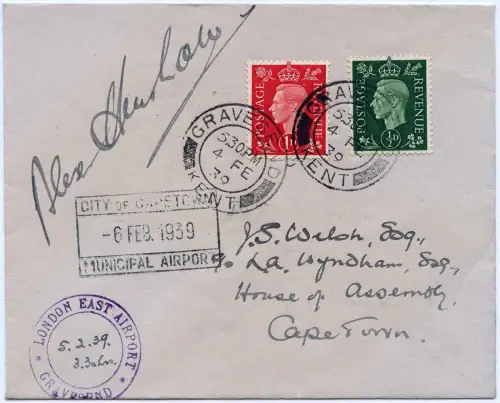 Alex Henshaw
POSTAGE REVENUE
1D
POSTAGE REVENUE
½D
GRAVESEND
5.30PM
4 FE
39
KENT
GRAVESEND
5.30PM
4 FE
39
KENT
CITY OF CAPETOWN
-6 FEB. 1939
MUNICIPAL AIRPORT
J.S. Welsh, Esq.,
c/o L.A. Wyndham, Esq.,
House of Assembly,
Cape Town.
LONDON EAST AIRPORT
5.2.39.
3.30hrs.
GRAVESEND